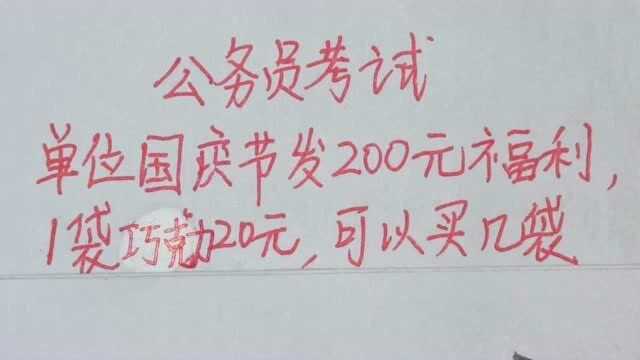 公务员考试
单位国庆节发200元福利,
1袋巧克力20元,可以买几袋